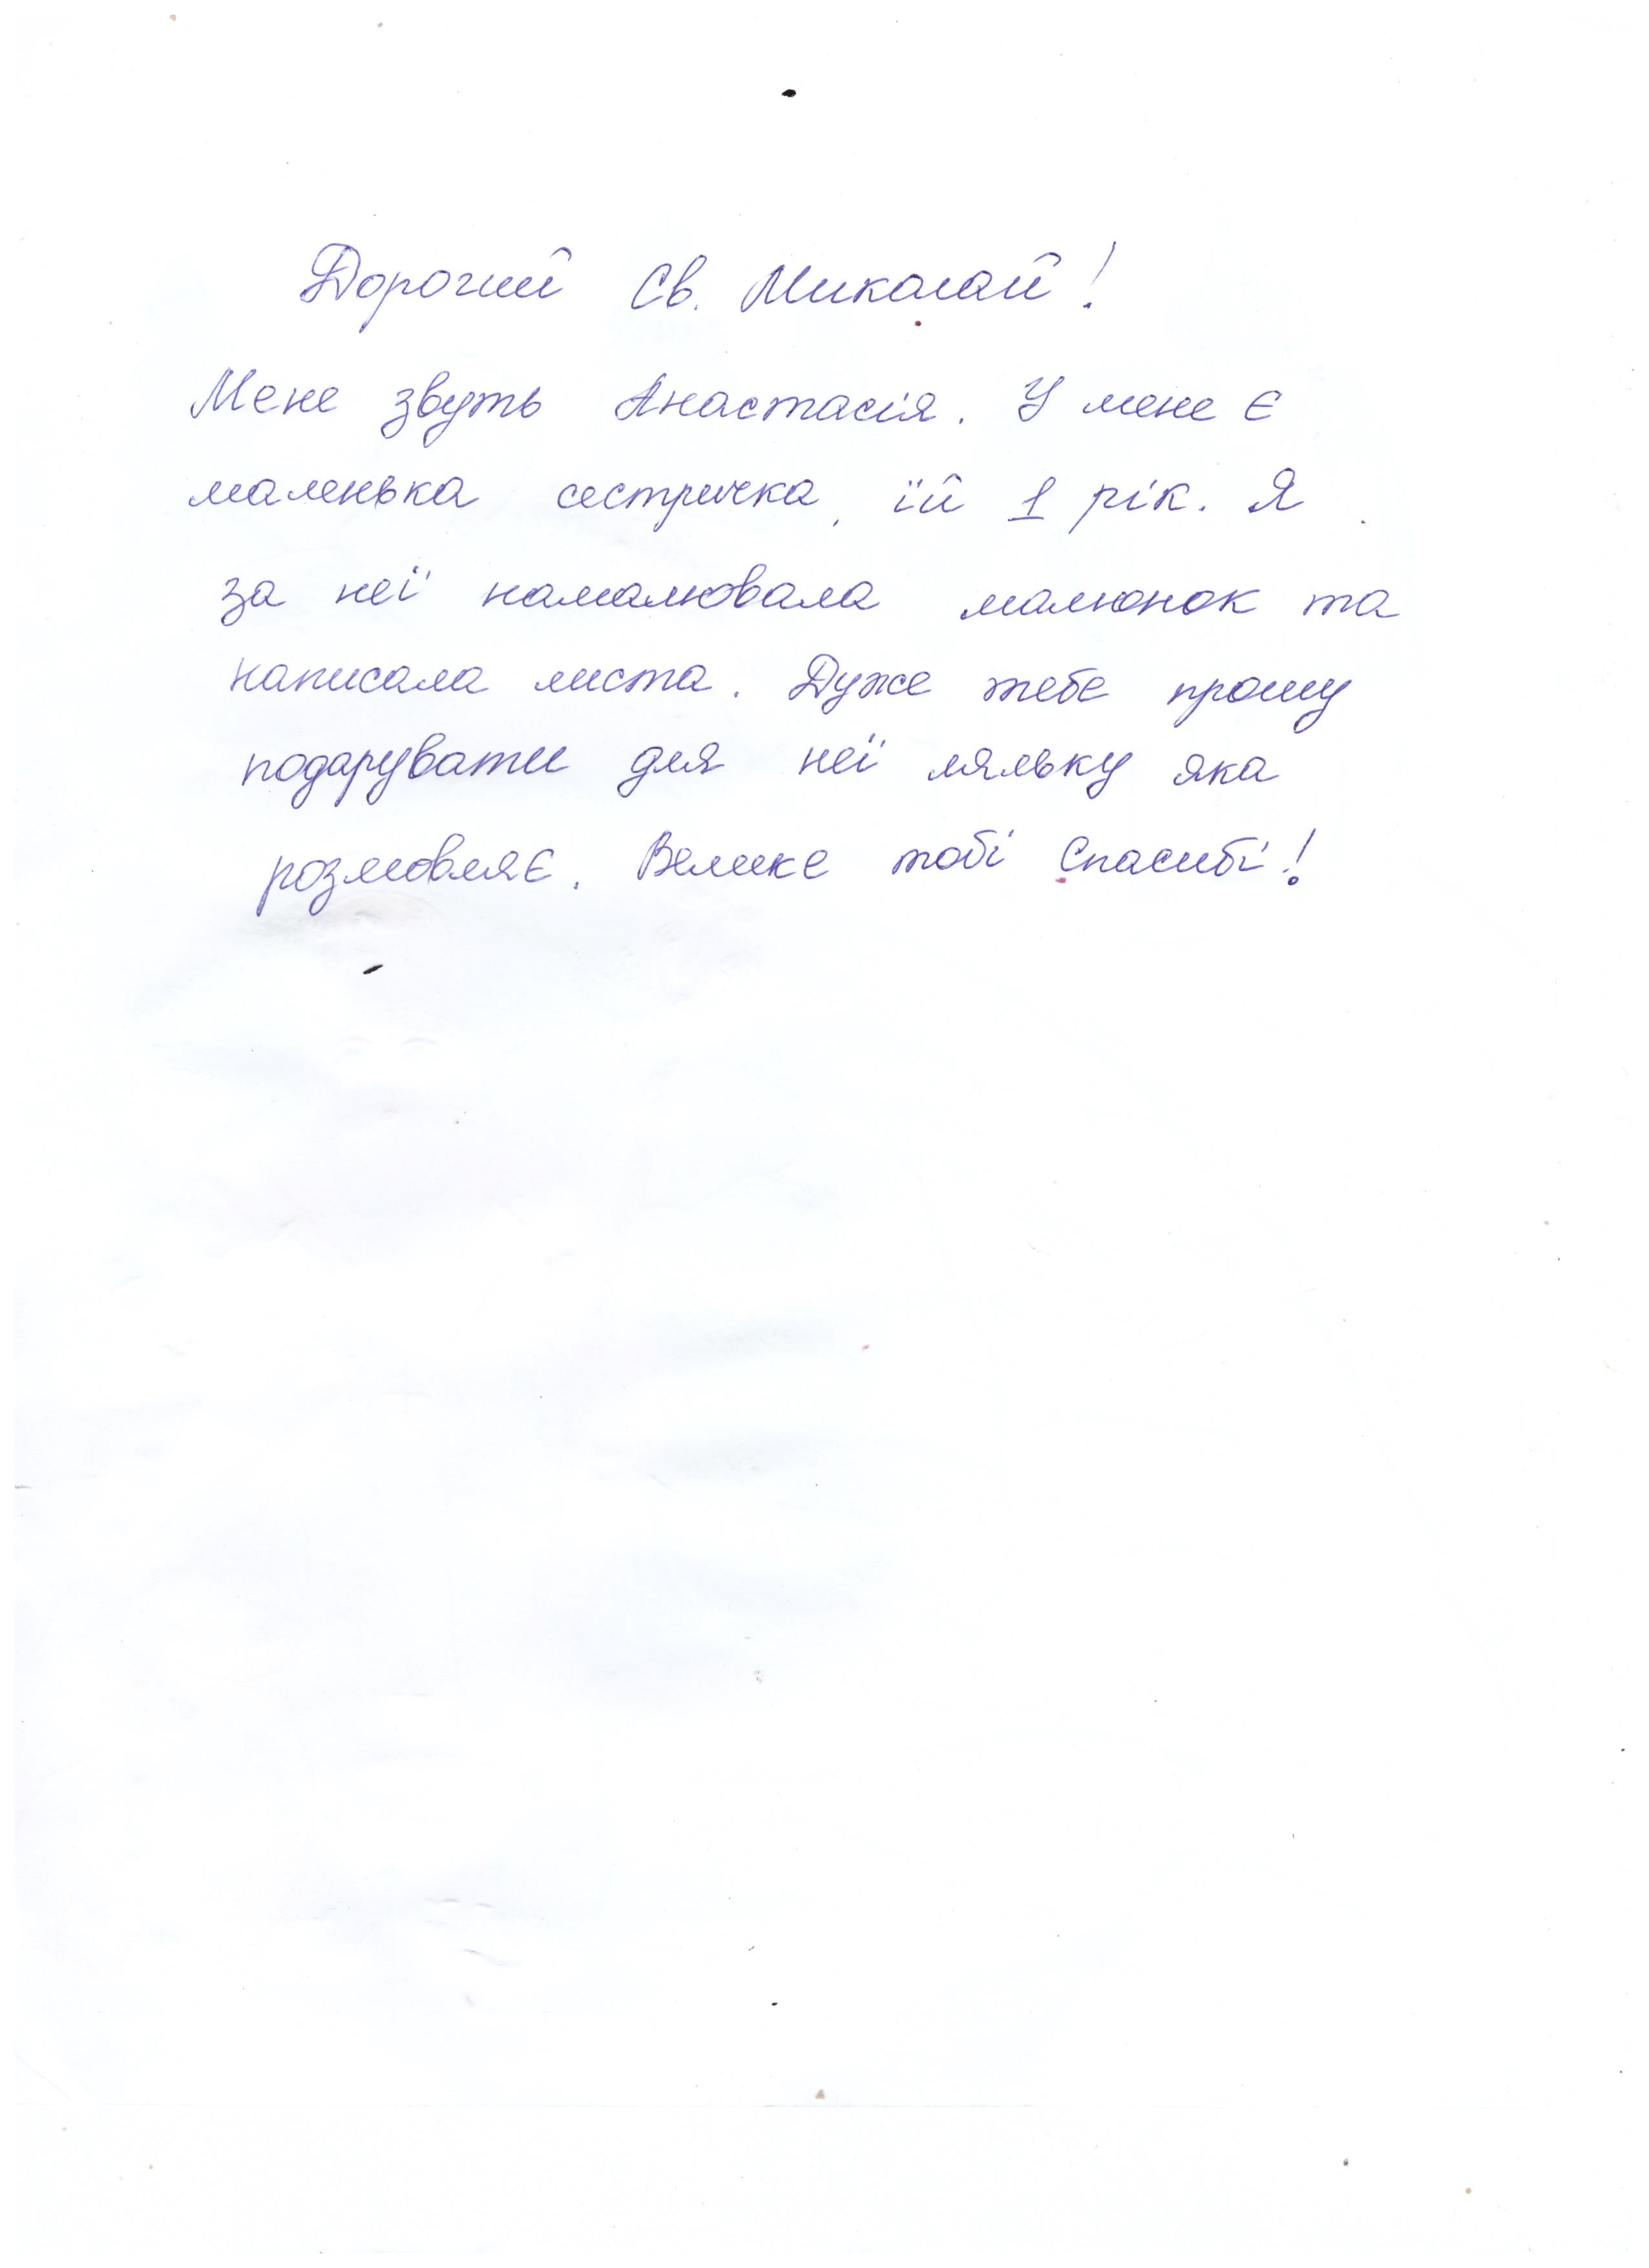 Дорогий Св. Миколай!
Мене звуть Анастасія. У мене є
маленька сестричка, їй 1 рік. Я
за неї намалювала малюнок та
написала листа. Дуже тебе прошу
подарувати для неї ляльку яка
розмовляє. Велике тобі Спасибі!